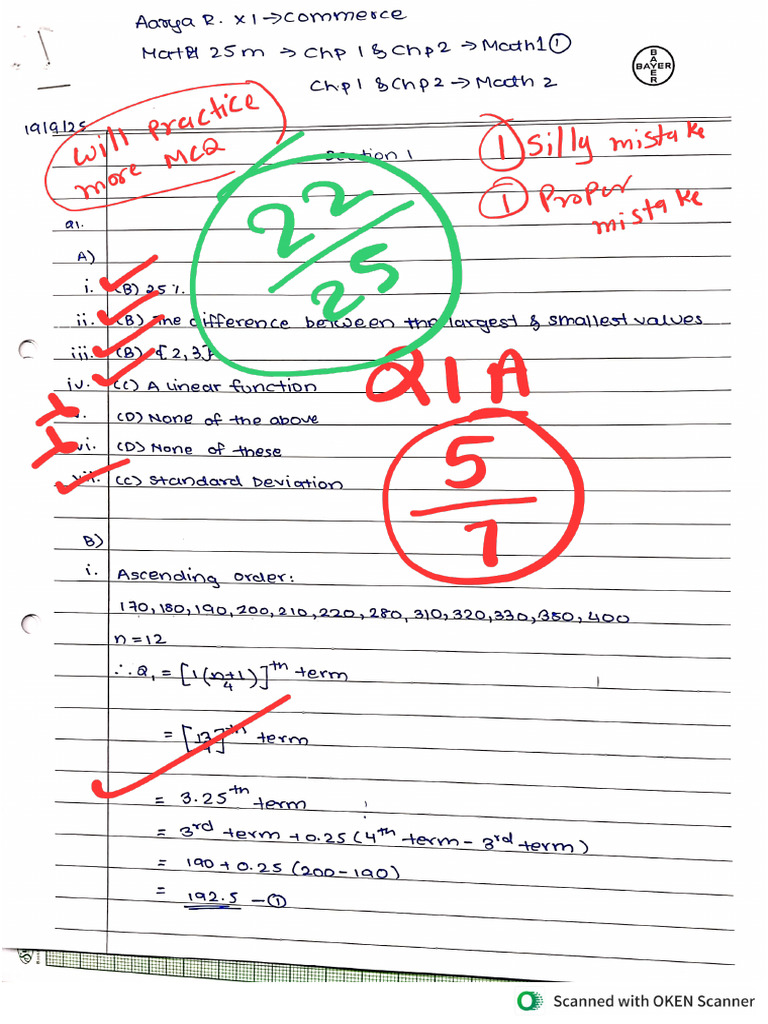 Aarya R. XI → Commerce
Math 25m → Chp 1 & Chp 2 → Math 1 ①
Chp 1 & Chp 2 → Math 2
BAYER
BAYER
19/9/25
will practice more MCQ
Section 1
① Silly mistake
① Proper mistake
22/25
Q1.
A)
i. (B) 25%.
ii. (B) The difference between the largest & smallest values
iii. (B) {2,3}
iv. (C) A linear function
Q1A
v. (D) None of the above
vi. (D) None of these
5/7
vii. (C) Standard Deviation
B)
i. Ascending order:
170, 180, 190, 200, 210, 220, 280, 310, 320, 330, 350, 400
n = 12
∴ Q₁ = [1(n+1)/4]th term
= [13/4]th term
= 3.25th term
= 3rd term + 0.25 (4th term - 3rd term)
= 190 + 0.25 (200 - 190)
= 192.5 — ①
Scanned with OKEN Scanner